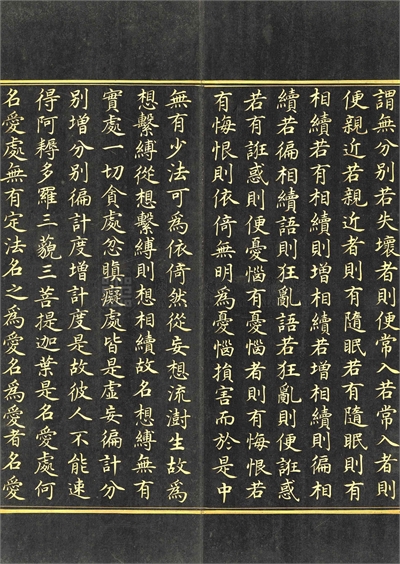 謂無分別若失壞者則便常入若常入者則
便親近若親近者則有隨眠若有隨眠則有
相續若有相續則增相續若增相續則徧相
續若徧相續語則狂亂語若狂亂則便誑惑
若有誑惑則便憂惱有憂惱者則有悔恨若
有悔恨則依倚無明為憂惱損害而於是中
無有少法可為依倚然從妄想流澍生故為
想繫縛從想繫縛則想相續故名想縛無有
實處一切貪處忿瞋癡處皆是虛妄徧計分
別增分別徧計度增計度是故彼人不能速
得阿耨多羅三藐三菩提迦葉是名愛處何
名愛處無有定法名之為愛名為愛者名愛